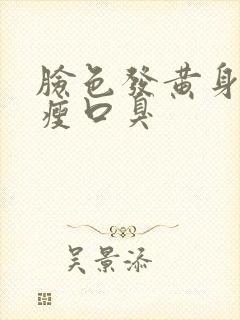 臉色發黃身
瘦口臭
吳景添